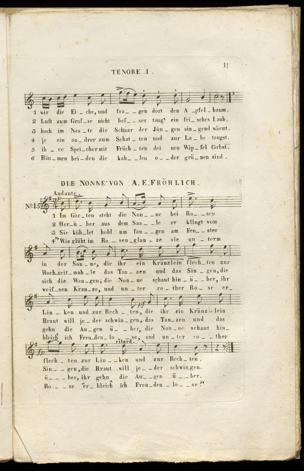 TENORE I.
11
1 wir die Ei_che, und fra_gen dort den A_pfel_baum.
2 Luft zum Gruf_se nicht bef_ser taug' ein fri_sches Laub.
3 hoch im Nes_te die Schaar der Jün_gen sin_gend wiegt.
4 je ein and_rer zum Schat_ten und zur Lau_be taugt.
5 ih_re Spei_cher mit Früch_ten den Wip_fel
6 Blü_men bei_den die kah_len o_der grü_nen sind.
DIE NONNE VON A.E. FRÖHLICH.
Andante
No. 15
1 Im Gar_ten steht die Non_ne bei Ro_sen
2 Her_ü_ber aus dem Saa_le er klingt vom
3 Sie küh_let hold um fan_gen am Fen_ster
4 "Wie glüht in Ro_sen_glan_ze sie un_term
in der Son_ne, die ihr ein Kränzlein flech_ten zur
Hochzeit_mah_le das Tan_zen und das Sin_gen, die
sich die Wan_gen; die Non_ne schaut hin_ü_ber, ihr
weif_sen Kran_ze, und un_ter ro_ther Ro_se er_
Lin_ken und zur Rech_ten, die ihr ein Kränzlein
Braut will je_der schwin_gen, das Tan_zen und das
gehn die Augen ü_ber, die Non_ne schaut hin_
bleich ich Freu_den_lo_se, und un_ter ro_ther
ritard.
flech_ten zur Lin_ken und zur Rech_ten.
Sin_gen, die Braut will je_der schwingen.
ü_ber, ihr gehn die Au_gen ü_ber.
Ro_se er_bleich ich Freu_den_lo_se."